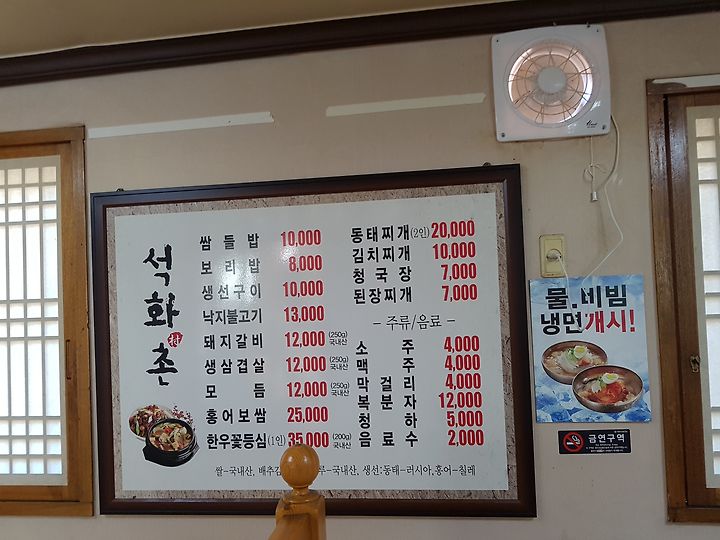 석화촌
쌈들밥 10,000
보리밥 8,000
생선구이 10,000
낙지불고기 13,000
돼지갈비 12,000 (250g) 국내산
생삼겹살 12,000 (250g) 국내산
모듬 12,000 (250g) 국내산
홍어보쌈 25,000
한우꽃등심(1인) 35,000 (200g) 국내산
동태찌개(2인) 20,000
김치찌개 10,000
청국장 7,000
된장찌개 7,000
- 주류/음료 -
소주 4,000
맥주 4,000
막걸리 4,000
복분자 12,000
청하 5,000
음료수 2,000
쌀-국내산, 배추김 루-국내산, 생선:동태-러시아,홍어-칠레
물.비빔
냉면개시!
금연구역